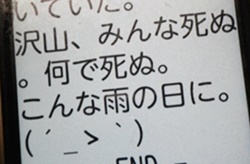 いていた。
沢山、みんな死ぬ
。何で死ぬ。
こんな雨の日に。
(´_>｀)
END